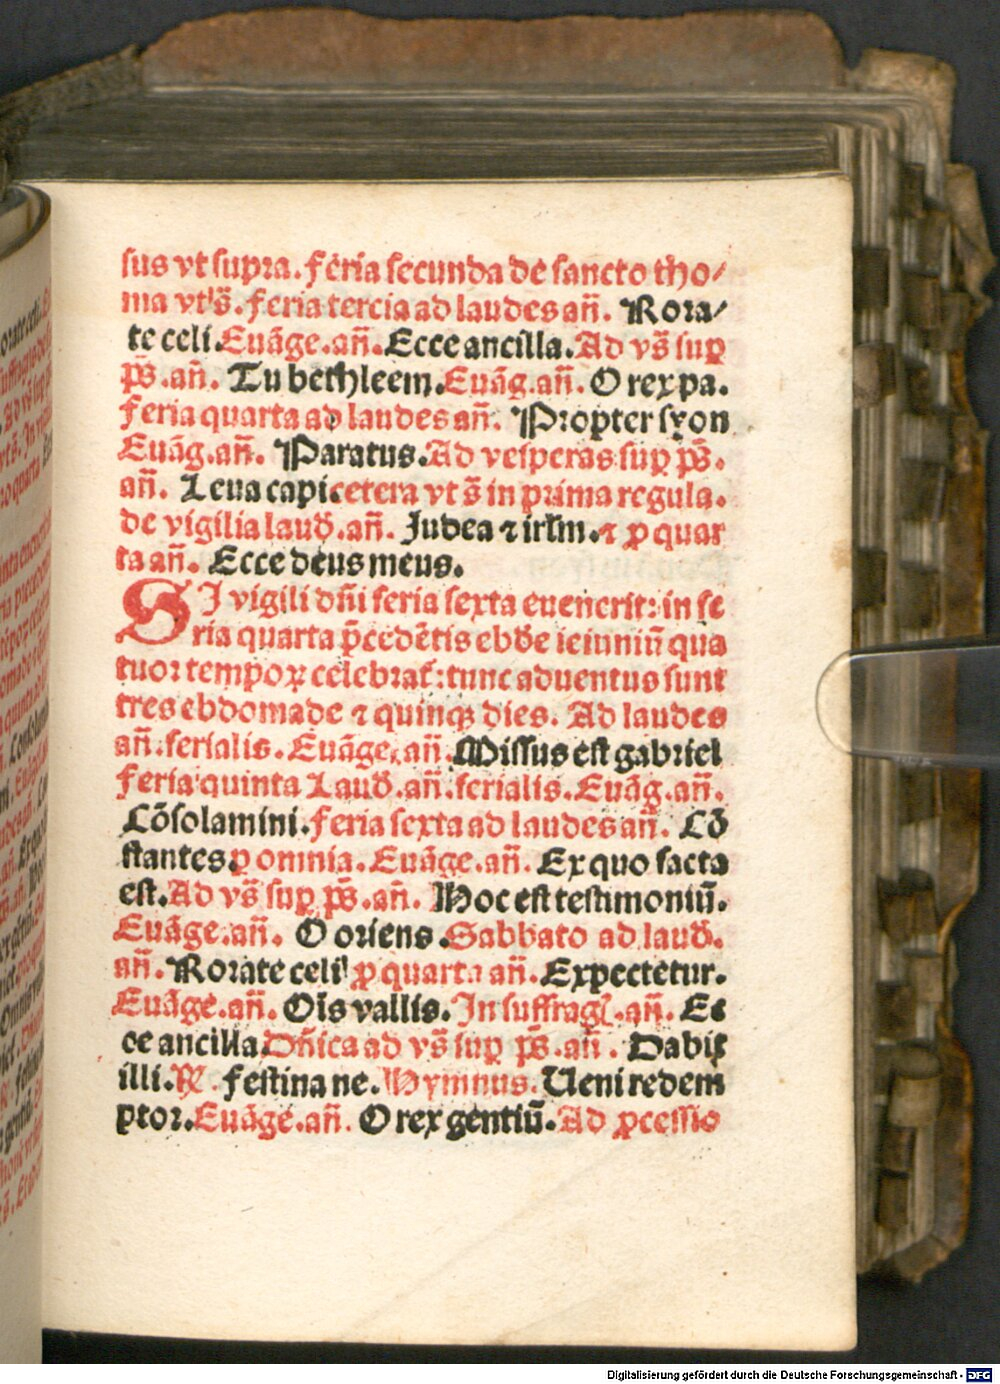 sus vt supra. feria secunda de sancto tho/
ma vt s̄. feria tercia ad laudes an̄. Rora/
te celi. Euāge. an̄. Ecce ancilla. Ad vs̄ sup
ps̄. an̄. Tu bethleem. Euāg. an̄. O rex pa.
feria quarta ad laudes an̄. Propter syon
Euāg. an̄. Paratus. Ad vesperas sup ps̄.
an̄. Leua capi. cetera vt s̄ in prima regula.
de vigilia laud̄. an̄. Judea ⁊ irl̄m. ⁊ ꝓ quar
ta an̄. Ecce deus meus.
SI vigili dn̄i feria sexta euenerit: in fe
ria quarta p̄cedētis ebd̄e ieiuniū qua
tuor tempoꝝ celebrat̄: tunc aduentus sunt
tres ebdomade ⁊ quinqꝫ dies. Ad laudes
an̄. ferialis. Euāge. an̄. Missus est gabriel
feria quinta Laud̄. an̄. ferialis. Euāg. an̄.
Cōsolamini. feria sexta ad laudes an̄. Cō
stantes. ꝑ omnia. Euāge. an̄. Ex quo facta
est. Ad vs̄ sup ps̄. an̄. Hoc est testimoniū.
Euāge. an̄. O oriens. Sabbato ad laud̄.
an̄. Rorate celi ꝓ quarta an̄. Expectetur.
Euāge. an̄. Oīs vallis. In suffrag. an̄. Ec
ce ancilla Dn̄ica ad vs̄ sup ps̄. an̄. Dabit
illi. ℟. festina ne. Hymnus. Ueni redem
ptor. Euāge. an̄. O rex gentiū. Ad ꝓcessio
Digitalisierung gefördert durch die Deutsche Forschungsgemeinschaft - DFG